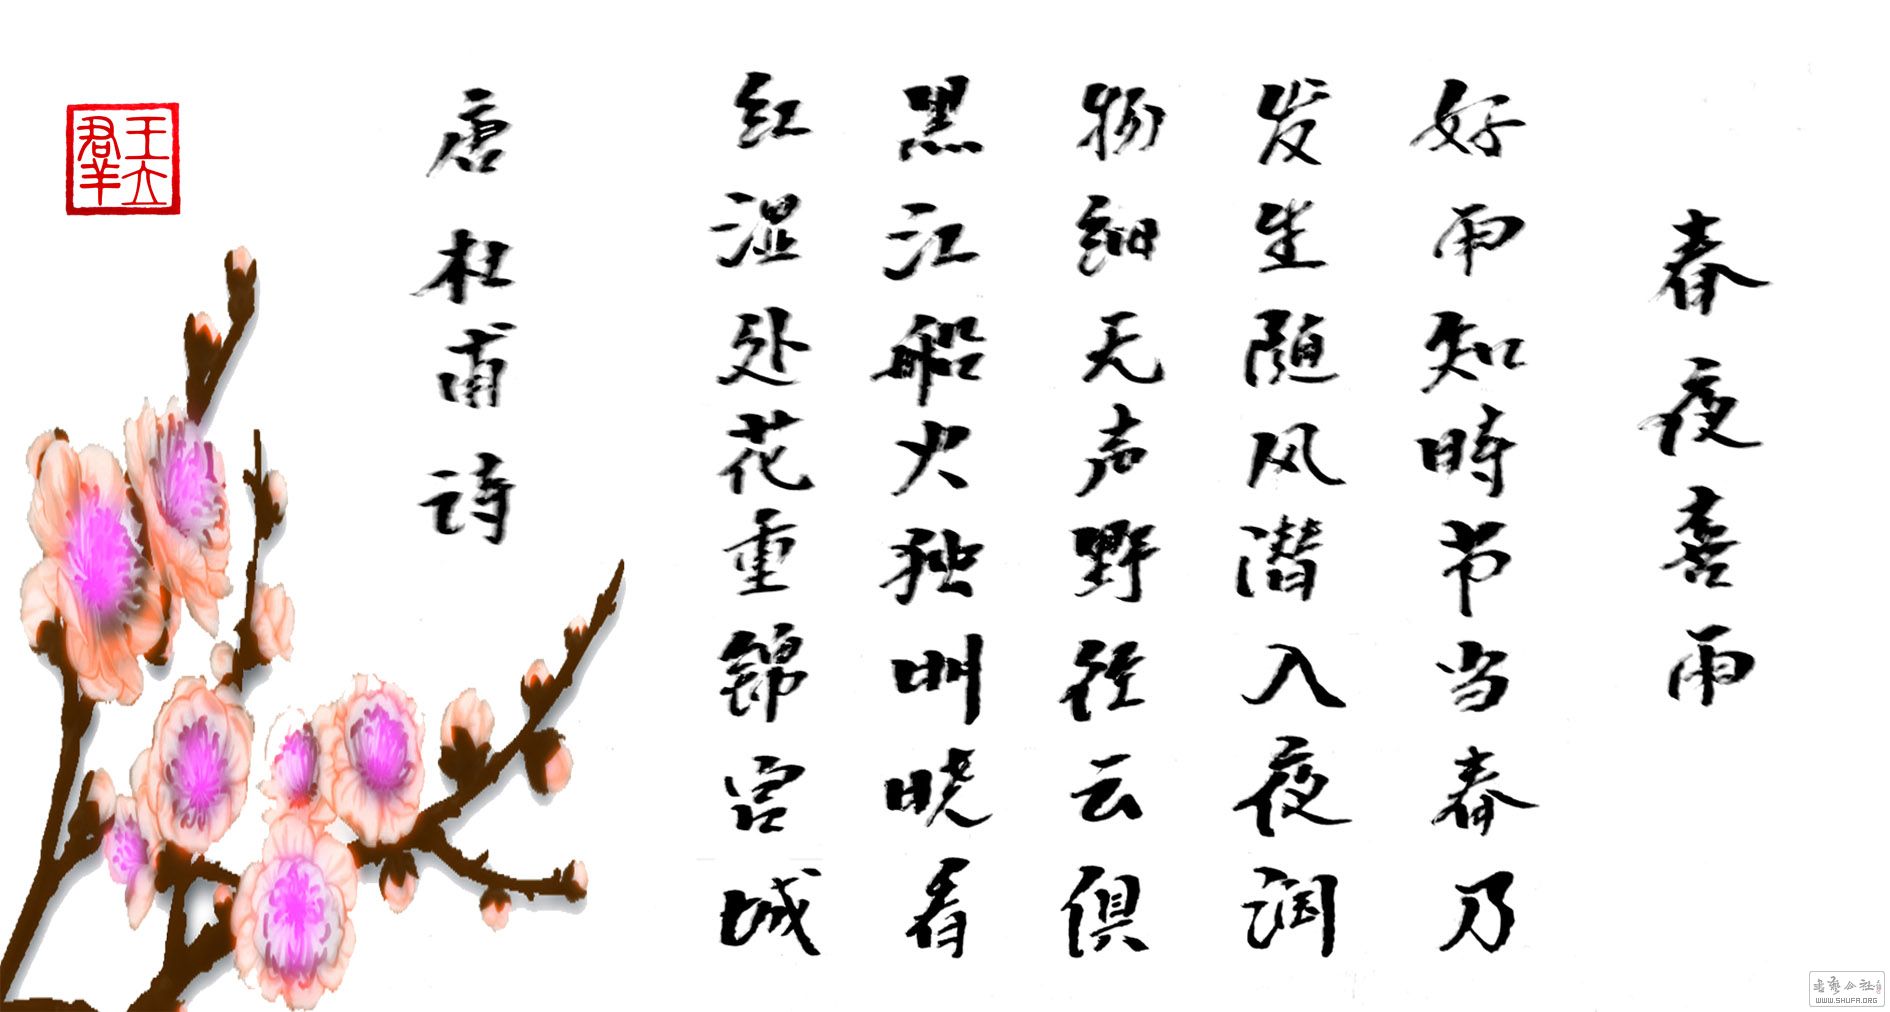 春夜喜雨
好雨知時节当春乃
发生随风潜入夜润
物细无声野径云俱
黑江船火独明晓看
红湿处花重锦宫城
唐杜甫诗
王立羣
书艺公社
WWW.SHUFA.ORG